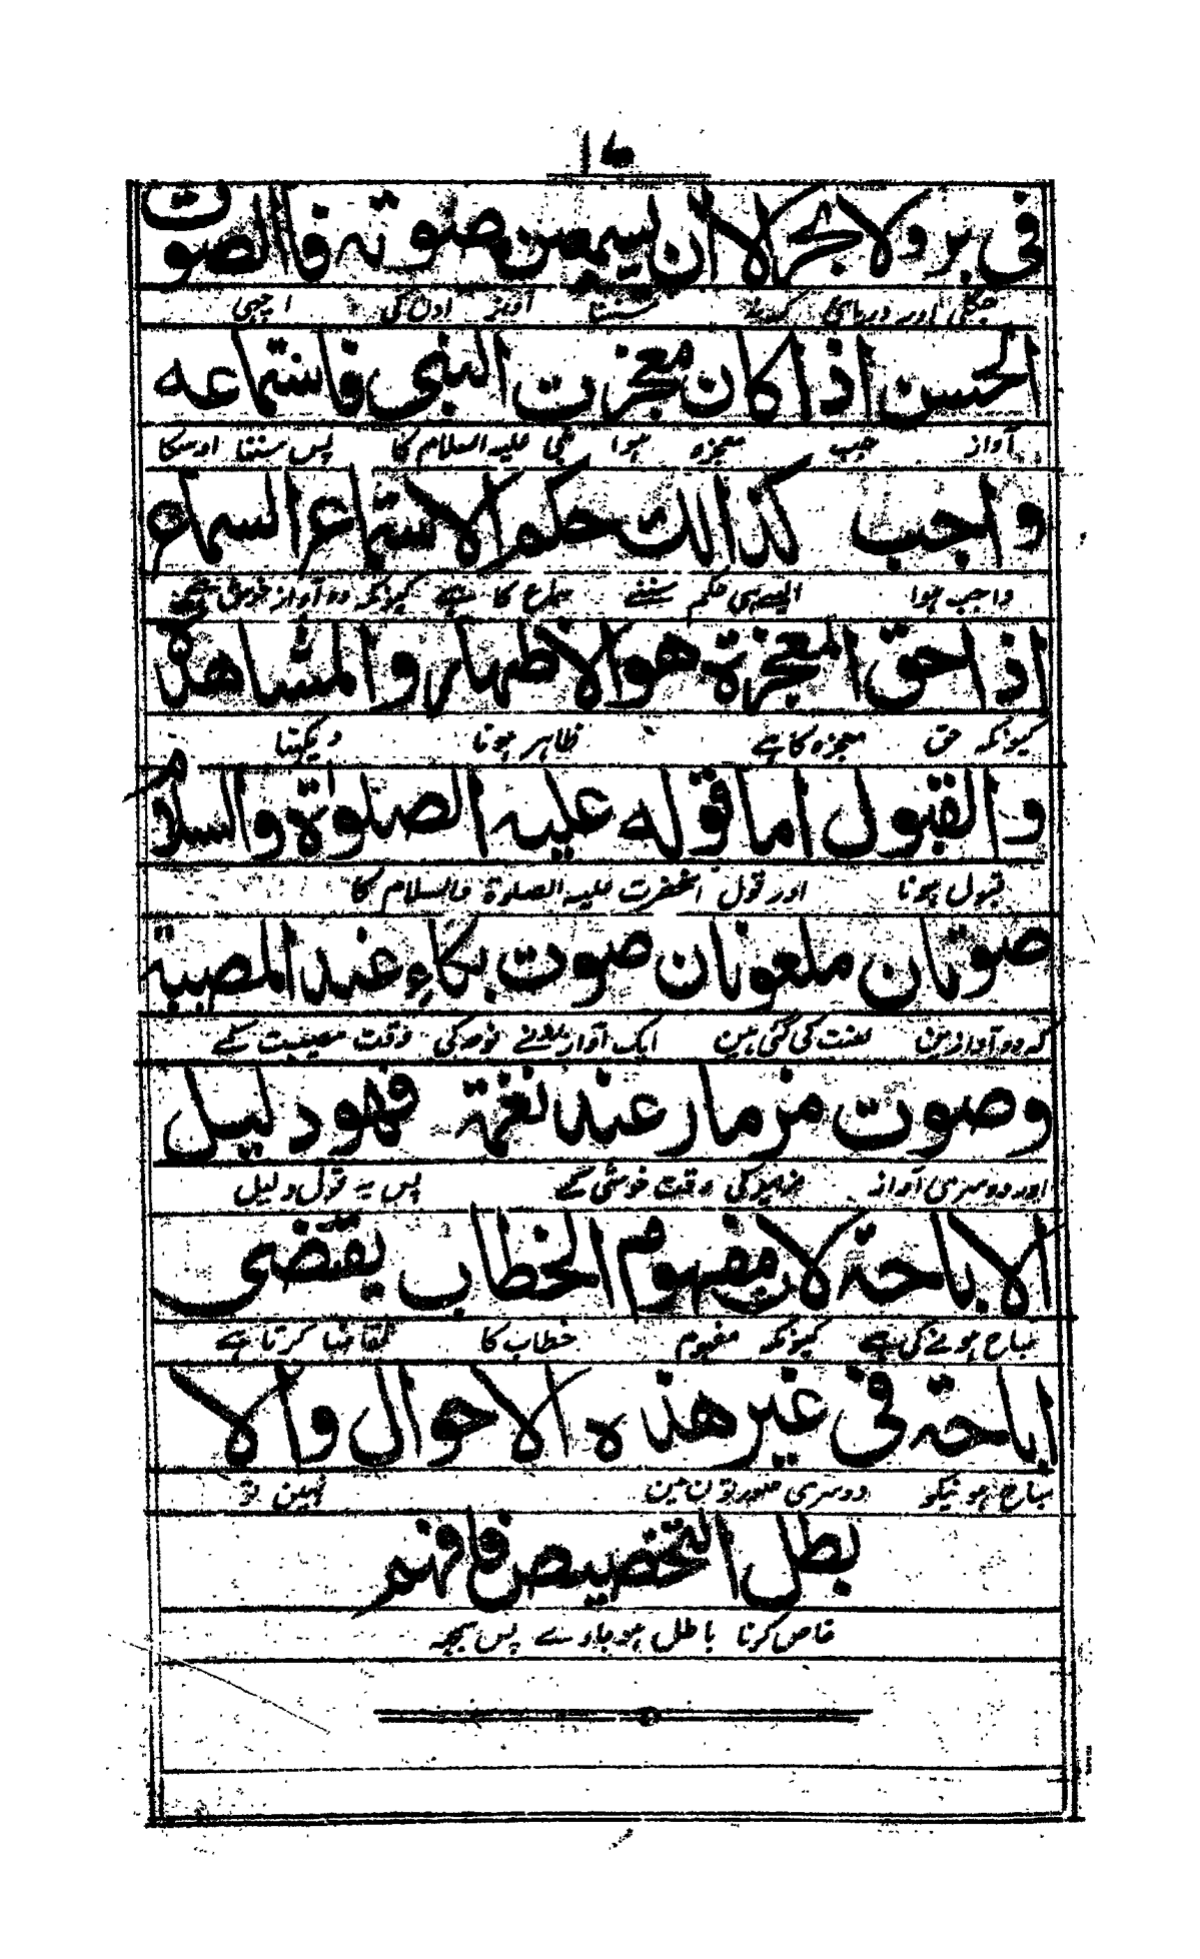 ١٧
فی بر ولا بحر الا ان يسمعن صوته فاالصوت
جنگلی اور دریائی کہ سننا آواز اون کی اچھی
الحسن اذا كان معجزت النبی فاستماعه
آواز جب معجزہ ہوا نبی علیہ السلام کا پس سننا اوسکا
واجب كذالك حكم الاستماع السماع
واجب ہوا ایسے ہی حکم سننے سماع کا ہے کیونکہ وہ آواز خوش
اذا حق المعجزة هو الاظهار والمشاهدة
کیونکہ حق معجزہ کا ہے ظاہر ہونا دیکھنا
والقبول اما قوله عليه الصلوة والسلام
قبول ہونا اور قول آنحضرت علیہ الصلوۃ والسلام کا
صوتان ملعونان صوت بكاء عند المصيبة
کہ دو آوازین لعنت کی گئی ہین ایک آواز نوحہ کی وقت مصیبت کے
وصوت مزمار عند نغمة فهو دليل
اور دوسری آواز مزمار کی وقت خوشی کے پس یہ قول دلیل
الاباحة لان مفهوم الخطاب يقتضی
مباح ہونے کی ہے کیونکہ مفہوم خطاب کا تقاضا کرتا ہے
اباحة فی غير هذه الاحوال والا
مباح ہونیکو دوسری صورتون مین نہین تو
بطل التخصيص فافهم
خاص کرنا باطل ہو جاوے پس سمجھ